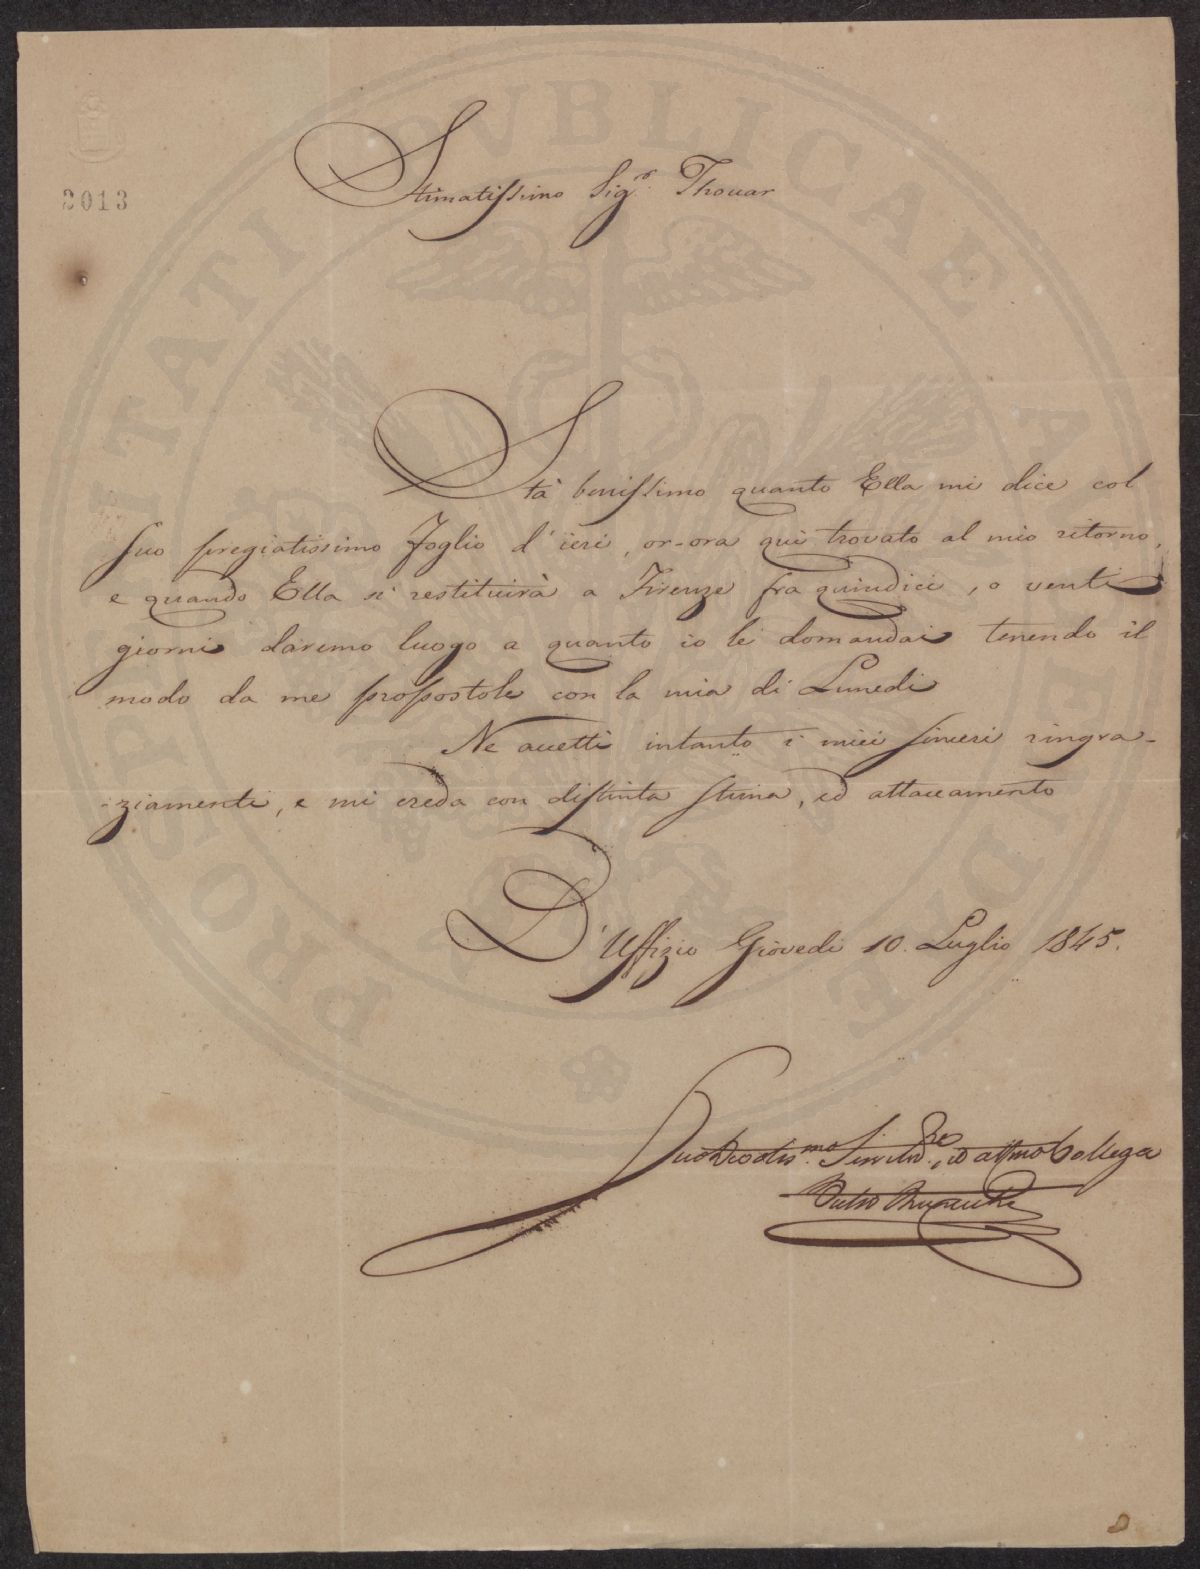 2013
Stimatissimo Sigr. Thouar
Stà benissimo quanto Ella mi dice col
suo pregiatissimo foglio d'ieri, or-ora quì trovato al mio ritorno,
e quando Ella si restituirà a Firenze fra quindici, o venti
giorni daremo luogo a quanto io le domandai tenendo il
modo da me propostole con la mia di Lunedi
Ne accetti intanto i miei sinceri ringra-
-ziamenti, e mi creda con distinta stima, ed attaccamento
D'Uffizio Giovedi 10. Luglio 1845.
Suo Devotis.mo Servit.re, ed aff.mo Collega
PROSPERITATI PVBLICAE AVGENDAE